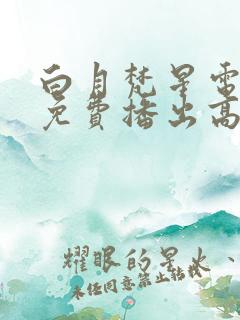 白月梵星電
免費播出高
耀眼的星火、
未经同意禁止转载